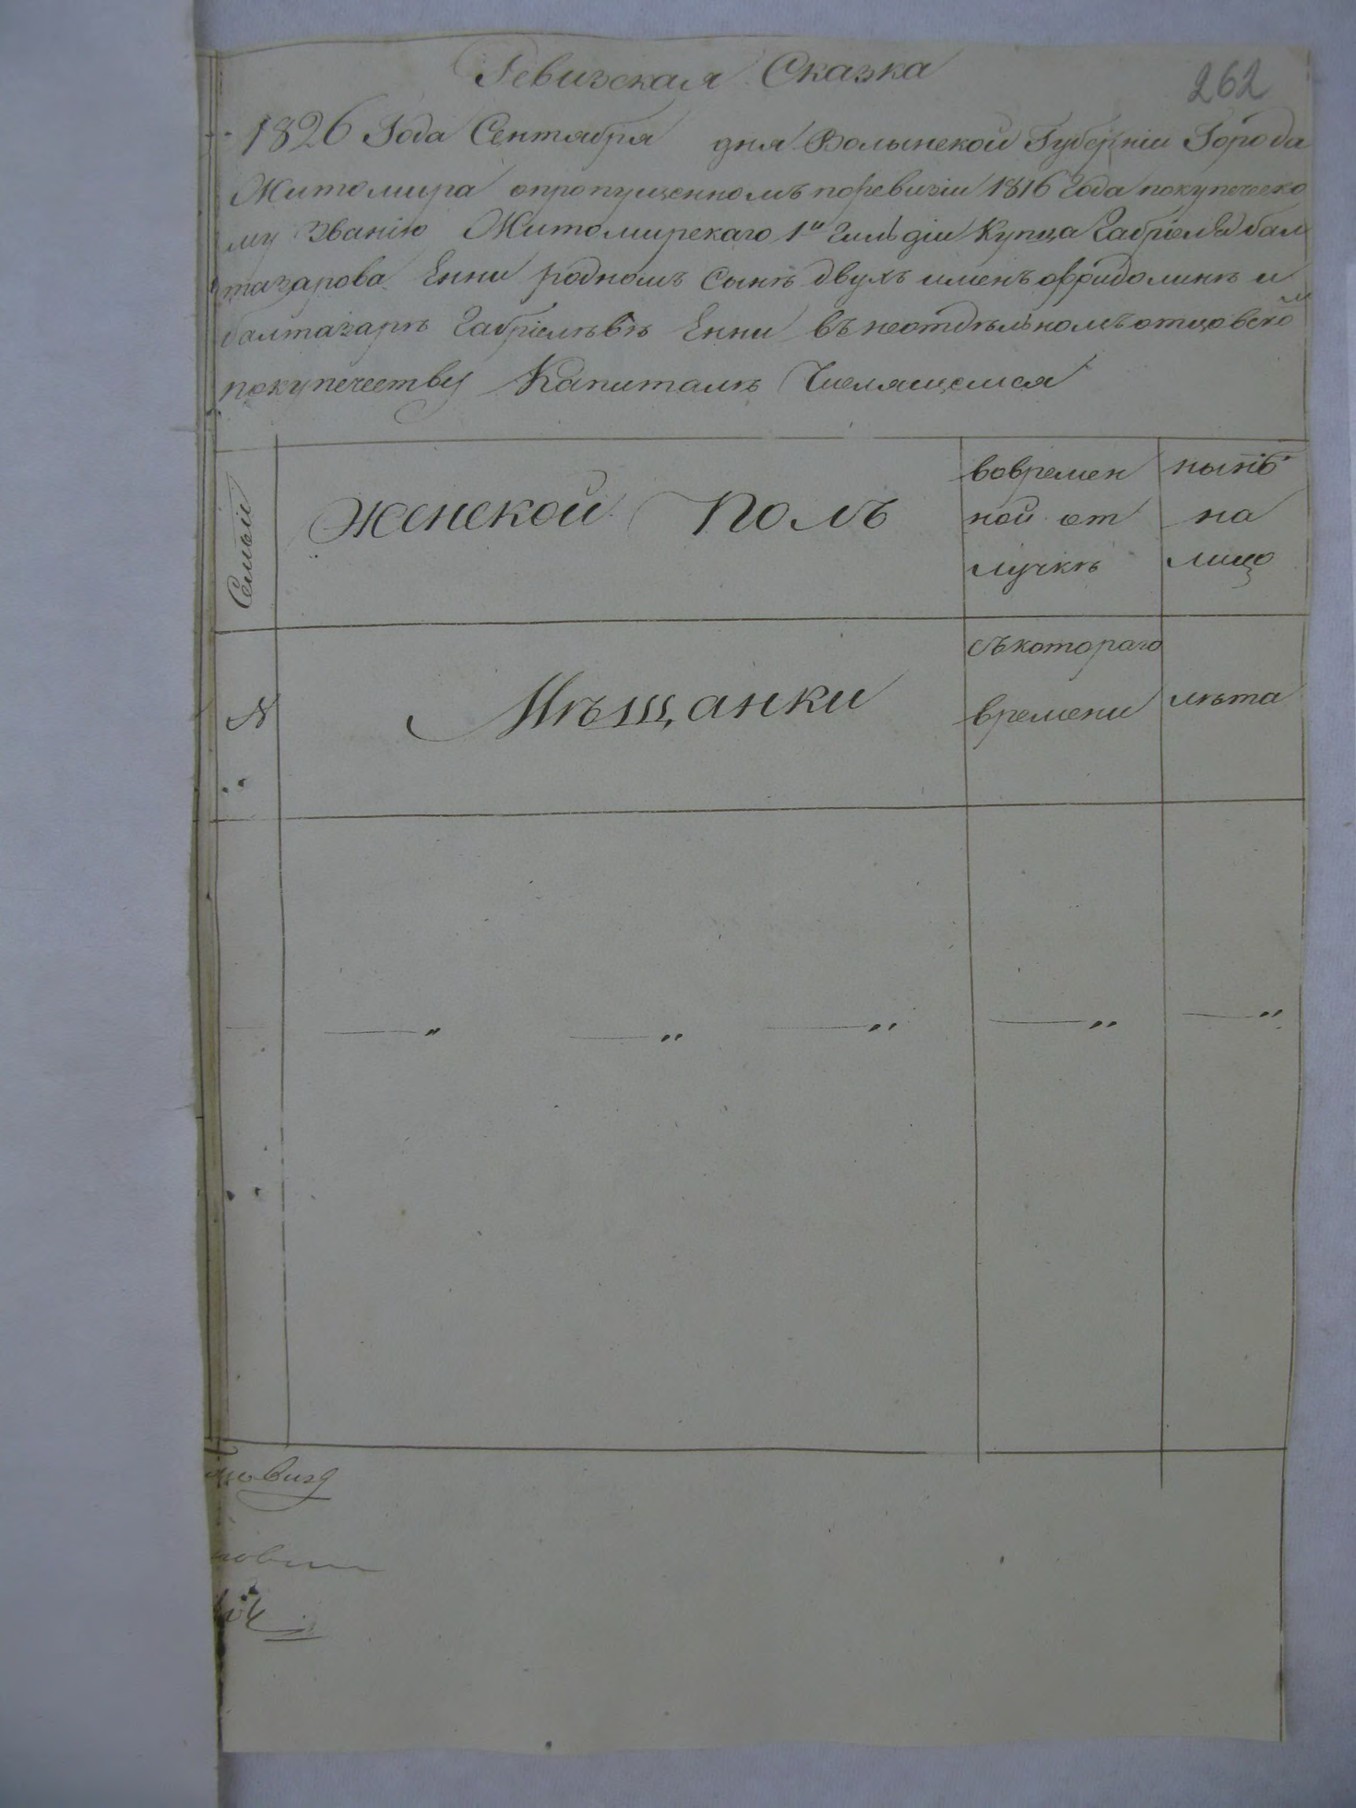 Ревизская Сказка
262
1826 Года Сентября дня Волынской Губерніи Города
Житомира опропущенномъ поревизіи 1816 года покупеческо
му званію Житомирскаго 1й Гильдіи Купца Габріеля бал
тазарова Енни родномъ сынѣ двухъ именъ офридолинѣ и
балтазарѣ Габріелѣвѣ Енни въ неотдѣльномъ отцовском
покупечеству Капиталѣ Числящемся
Семьи
Женской Полъ
вовремен
ной от
лучкѣ
нынѣ
на
лицо
№
Мѣщанки
съкотораго
времени
лѣта
—〃 —〃 —〃 —〃 —〃